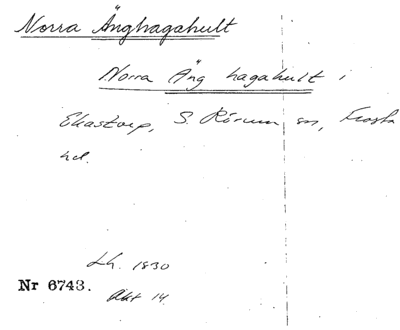 Norra Änghagahult
Norra Äng hagahult i
Ekastorp, S. Rörum sn, Frosta
hd.
Lh. 1830
Nr 6743.
Akt 14